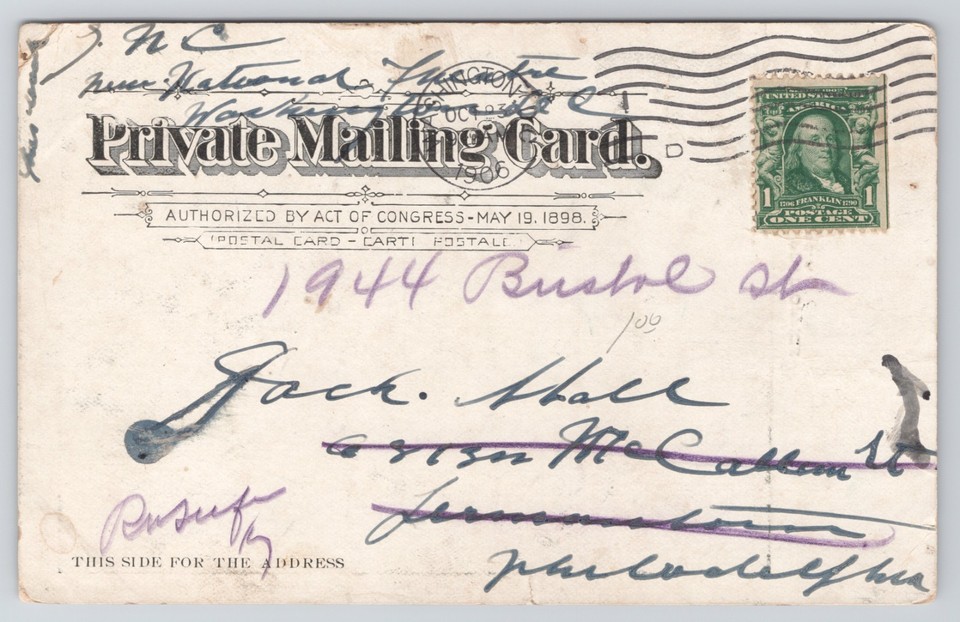 J. N C
New National Theatre
Washington D C
WASHINGTON, D.C.
OCT
1906
D
UNITED STATES OF
AMERICA
1 1
1706 FRANKLIN 1790
POSTAGE
ONE CENT
Private Mailing Card.
AUTHORIZED BY ACT OF CONGRESS-MAY 19. 1898.
(POSTAL CARD - CARTE POSTALE.)
1944 Bristol St
100
Jack. Shall
McCallum St
Germantown
Philadelphia
THIS SIDE FOR THE ADDRESS